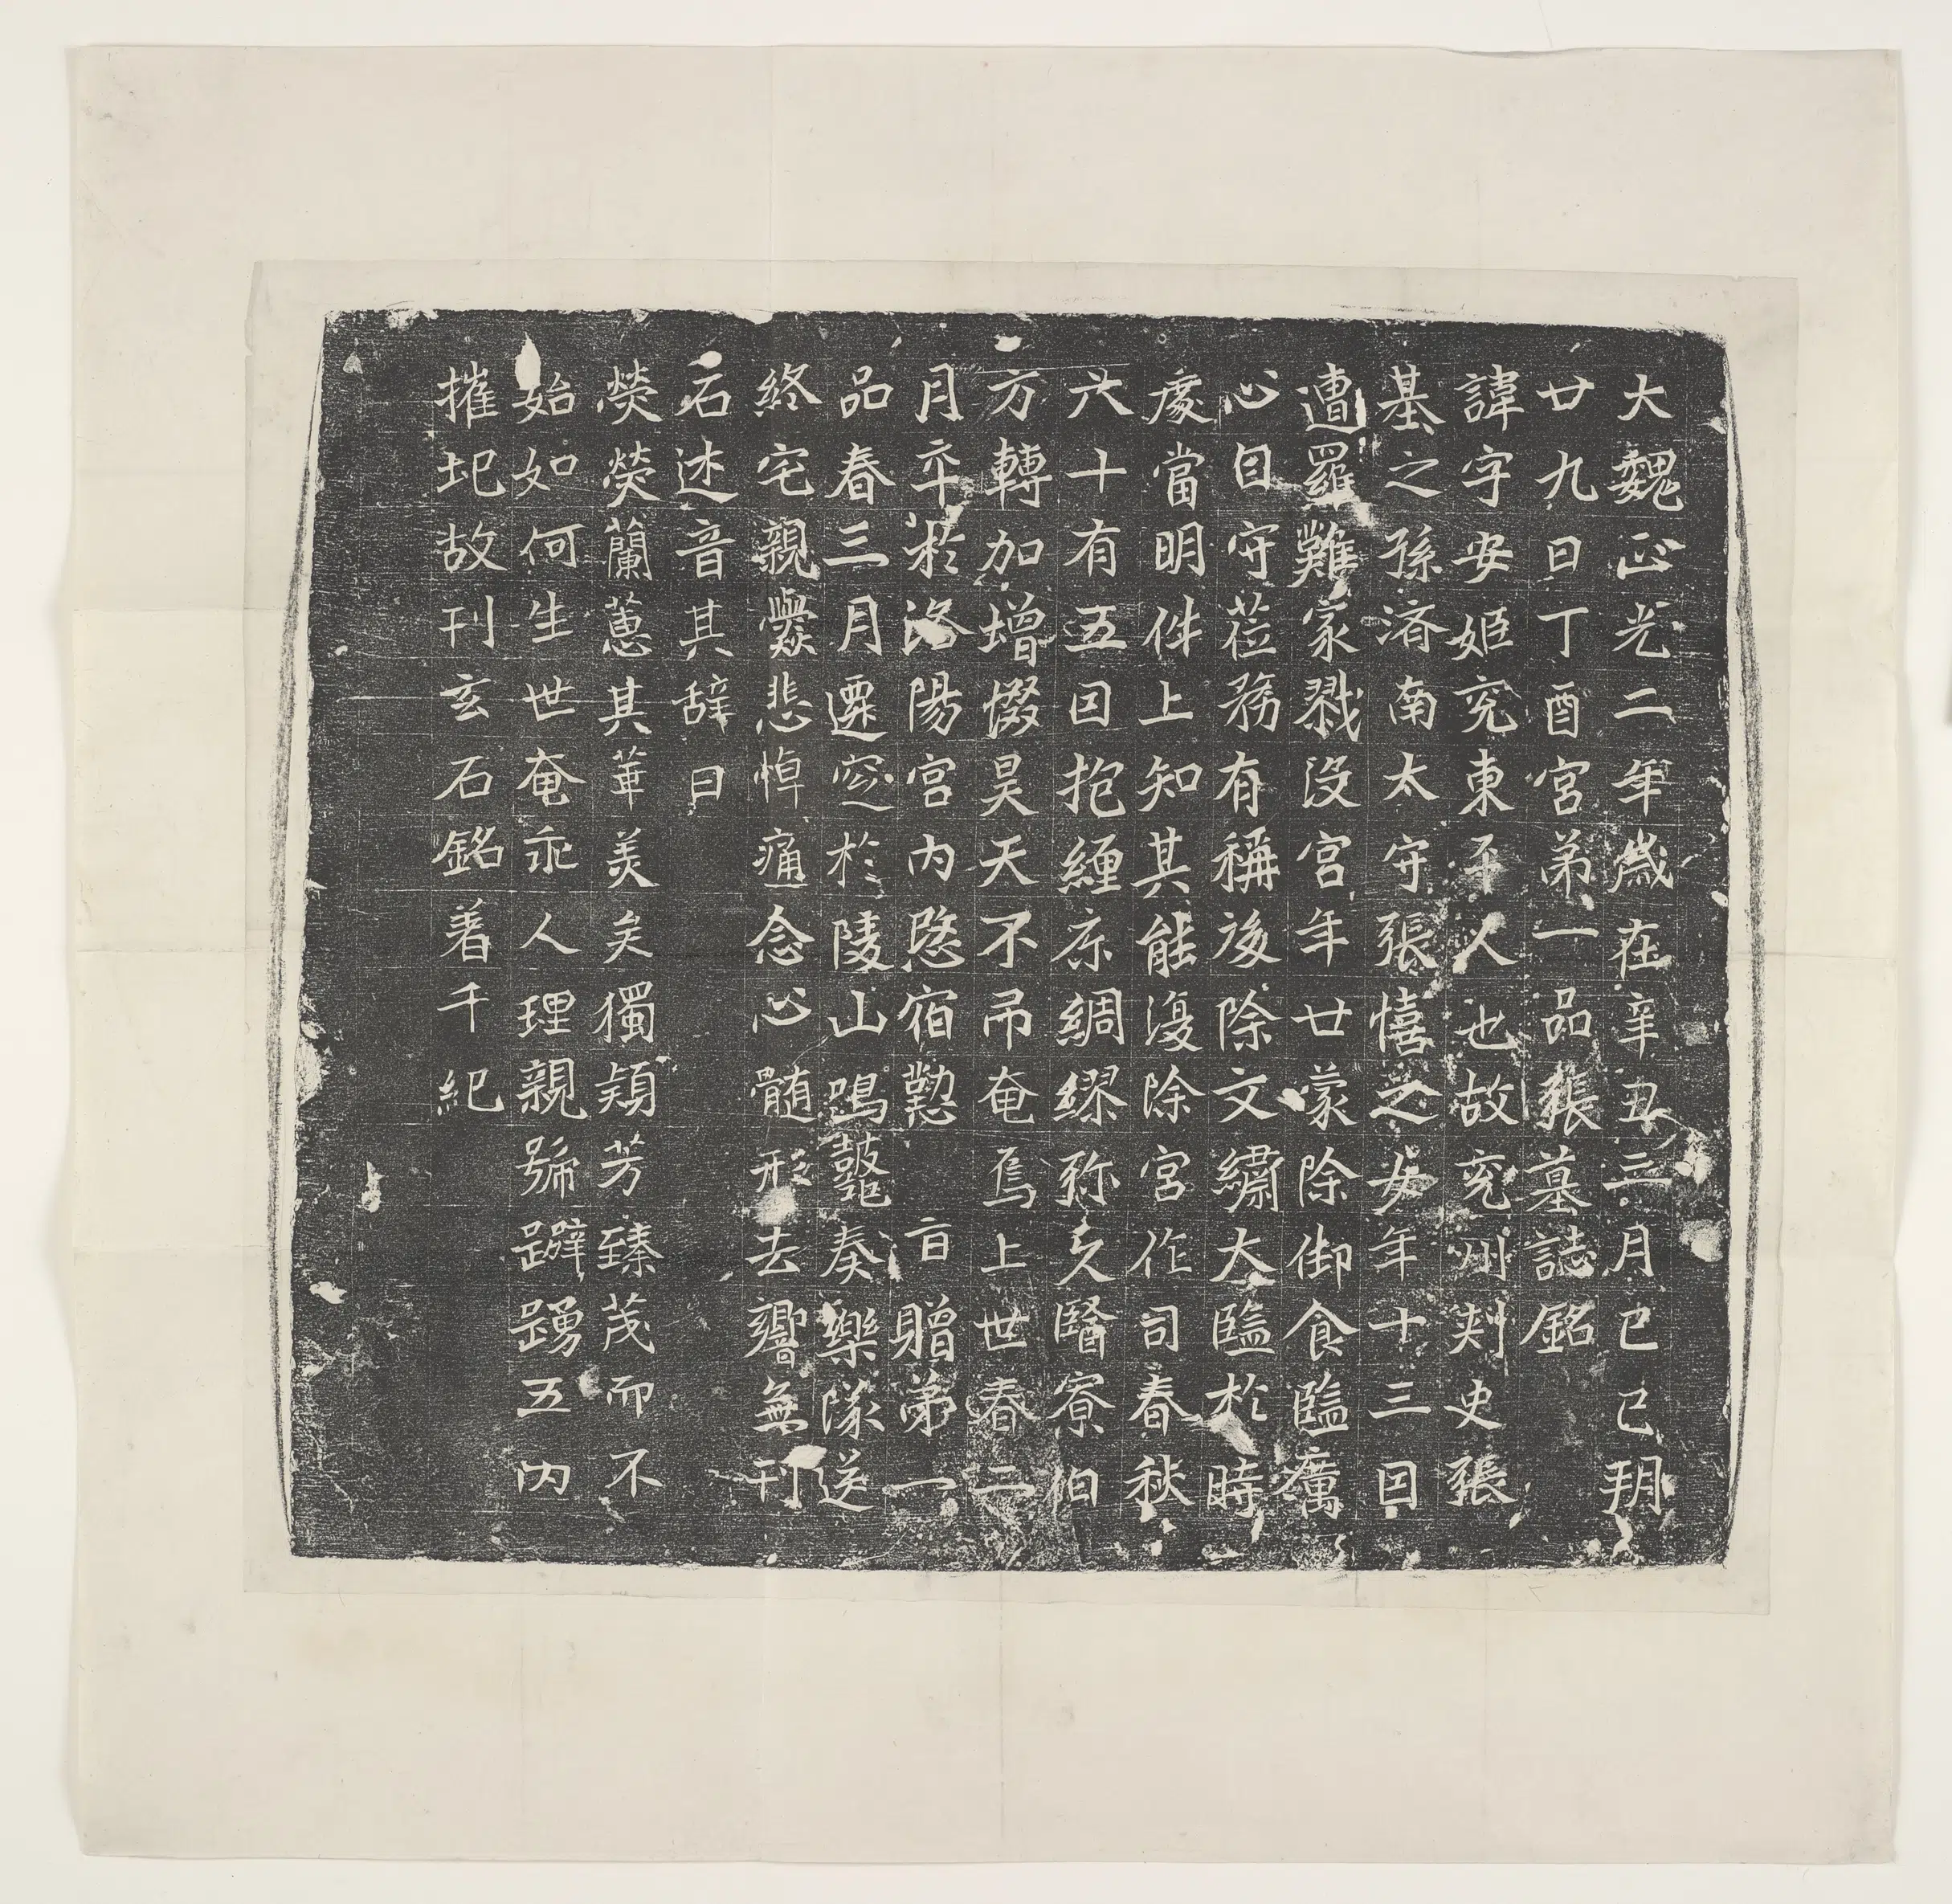 大魏正光二年歲在辛丑三月己巳朔
廿九日丁酉宮第一品張墓誌銘
諱字安姬兖東平人也故兖州刾史張
基之孫濟南太守張憘之女年十三因
遭羅難家戮没宮年廿蒙除御食監厲
心自守莅務有稱後除文繡大監於時
處當明件上知其能復除宮作司春秋
六十有五因抱纏疹綢繆弥久醫寮伯
方轉加增惙昊天不吊奄焉上世春二
月卒於洛陽宮内愍宿懃 旨贈第一
品春三月遷窆於陵山鳴鼓奏樂隊送
終宅親爨悲悼痛念心髄形去響無刊
石述音其辞曰
熒熒蘭蕙其華美矣獨穎芳臻茂而不
始如何生世奄乖人理親號躃踴五内
摧圯故刊玄石銘著千紀